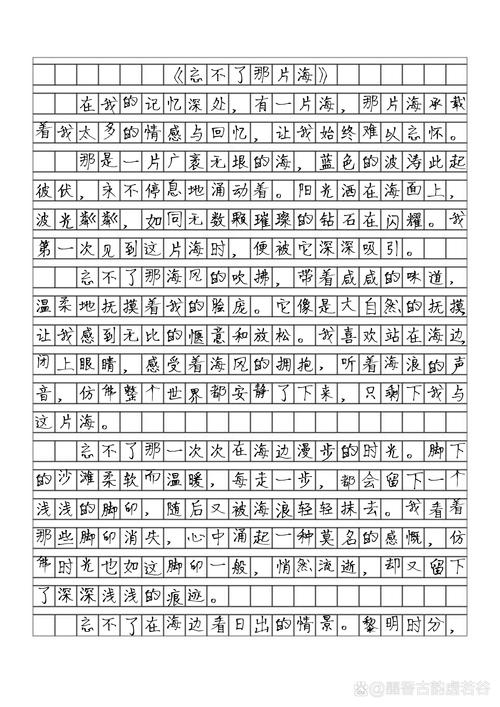 《忘不了那片海》
在我的记忆深处，有一片海，那片海承载
着我太多的情感与回忆，让我始终难以忘怀。
那是一片广袤无垠的海，蓝色的波涛此起
彼伏，永不停息地涌动着。阳光洒在海面上，
波光粼粼，如同无数颗璀璨的钻石在闪耀。我
第一次见到这片海时，便被它深深吸引。
忘不了那海风的吹拂，带着咸咸的味道，
温柔地抚摸着我的脸庞。它像是大自然的抚摸，
让我感到无比的惬意和放松。我喜欢站在海边，
闭上眼睛，感受着海风的拥抱，听着海浪的声
音，仿佛整个世界都安静了下来，只剩下我与
这片海。
忘不了那一次次在海边漫步的时光。脚下
的沙滩柔软而温暖，每走一步，都会留下一个
浅浅的脚印，随后又被海浪轻轻抹去。我看着
那些脚印消失，心中涌起一种莫名的感慨，仿
佛时光也如这脚印一般，悄然流逝，却又留下
了深深浅浅的痕迹。
忘不了在海边看日出的情景。黎明时分，